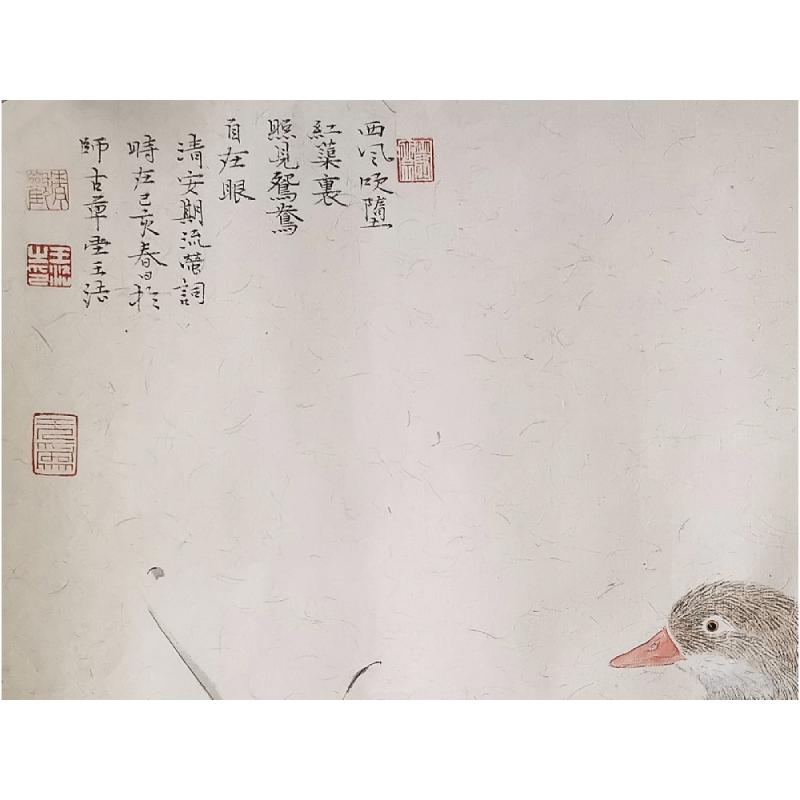 西风吹墮
紅蕖裏
照見鴛鴦
自在眠
清安期流螢詞
時在己亥春日於
師古草堂王洁